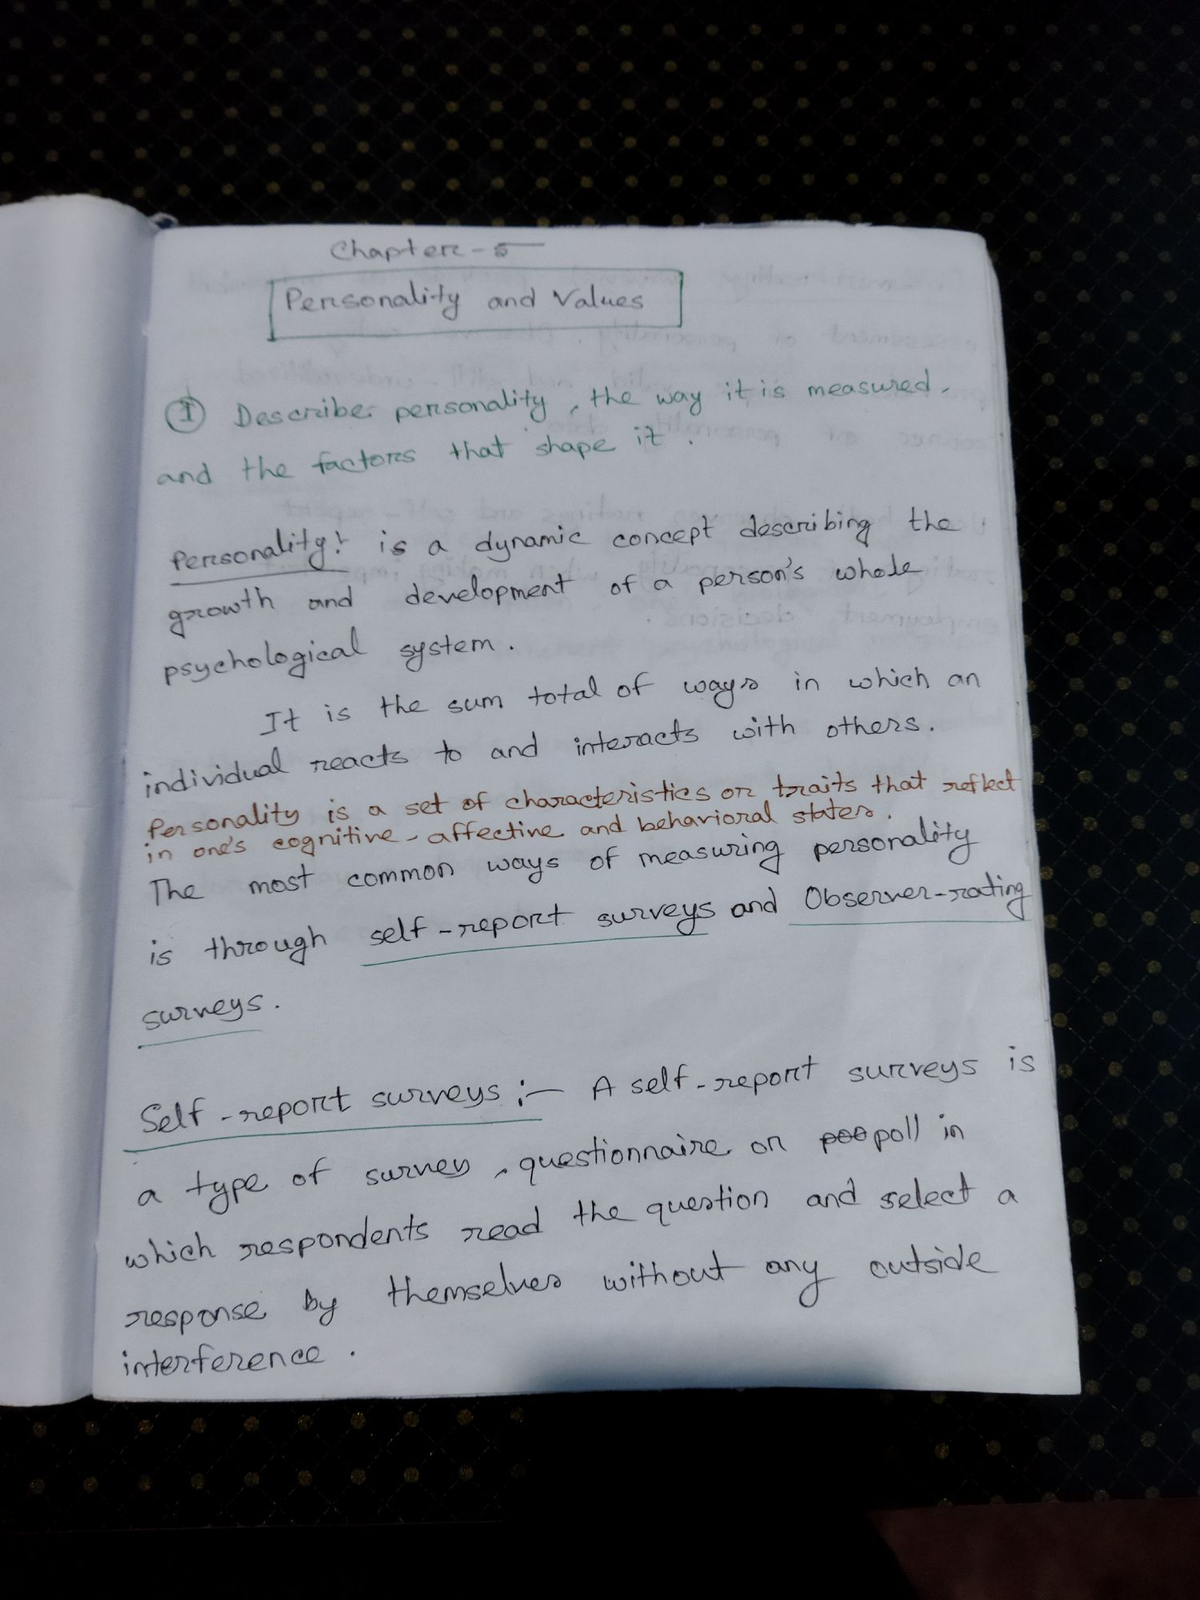 Chapter - 5
Personality and Values
① Describe personality, the way it is measured.
and the factors that shape it.
Personality: is a dynamic concept describing the
growth and development of a person's whole
psychological system.
It is the sum total of ways in which an
individual reacts to and interacts with others.
Personality is a set of characteristics or traits that reflect
in one's cognitive - affective and behavioral states.
The most common ways of measuring personality
is through self-report surveys and Observer-rating
surveys.
Self-report surveys :- A self-report surveys is
a type of survey, questionnaire or poo poll in
which respondents read the question and select a
response by themselves without any outside
interference.